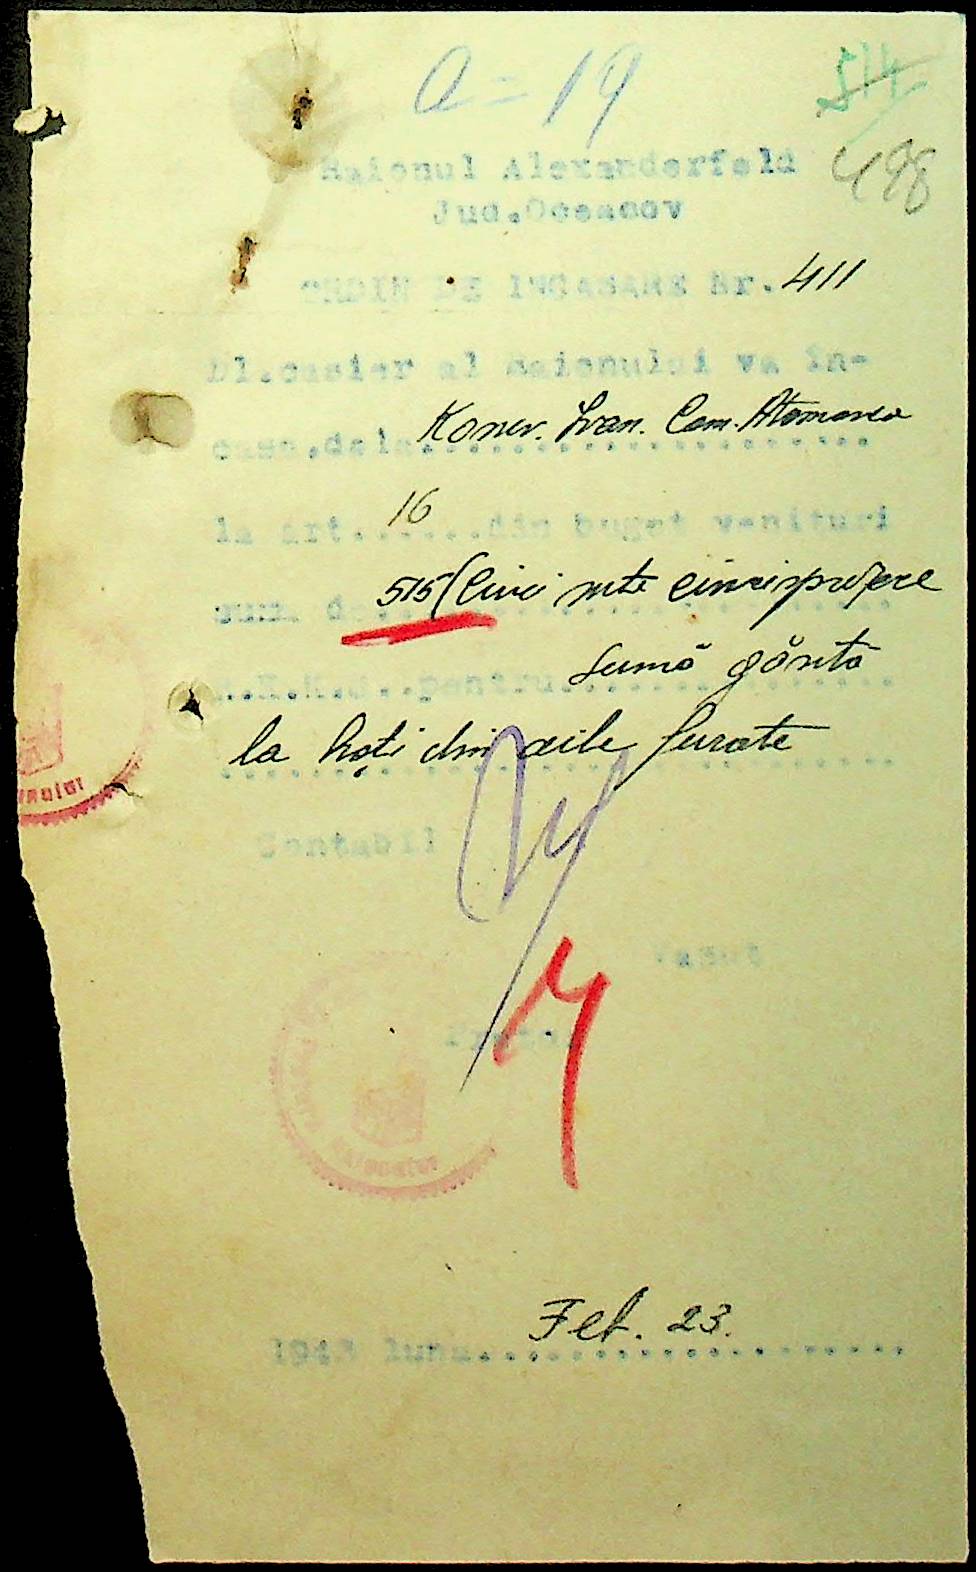 a = 19
514
498
Raionul Alexanderfeld
Jud.Oceacov
ORDIN DE INCASARE Nr. 411
Dl.casier al Raionului va în-
casa.dela Koner. Ivan. Com.
la art. 16 din buget venituri
suma de 515 (Cinci sute cincisprezece
R.K.K.S..pentru Sumă găsită
la hoți din cele furate
Contabil
Vazut
Pretor
Raionului
1943 luna Feb. 23.